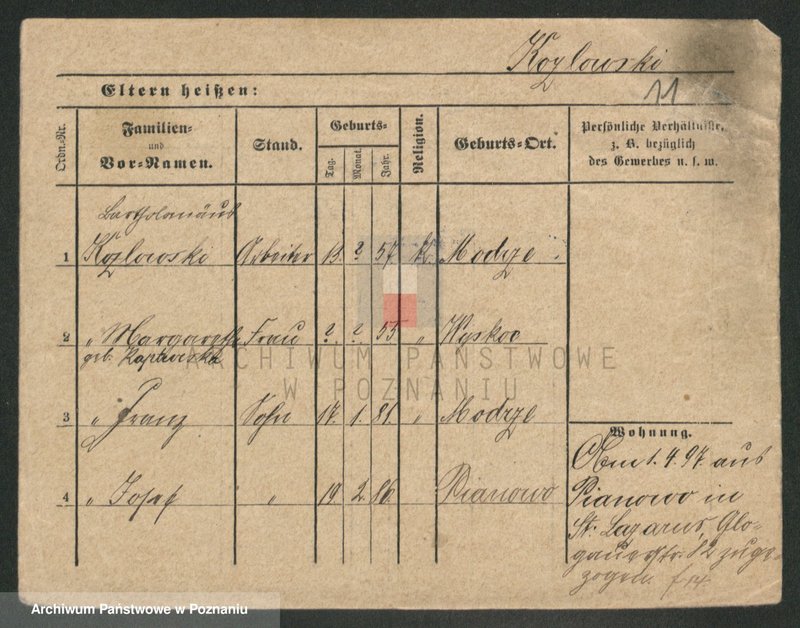 Kozlowski
11
Eltern heißen:
Ordn.-Nr.
Familien-
und
Vor-Namen.
Stand.
Geburts-
Tag.
Monat.
Jahr.
Religion.
Geburts-Ort.
Persönliche Verhältnisse,
z. B. bezüglich
des Gewerbes u. s. w.
Bartholomäus
1 Kozlowski Arbeiter 13. ? 57. k. Modrze
2 " Margarethe Frau ? ? 55 "
geb.
3 " Franz Sohn 17. 1. 81. " Modrze
4 " Josef " 19. 2. 86. Pianowo
Wohnung.
Am 1.4.97. aus
Pianowo in
St. Lazarus, Glo-
gauerstr. 82 zuge-
zogen.
ARCHIWUM PAŃSTWOWE
W POZNANIU
Archiwum Państwowe w Poznaniu